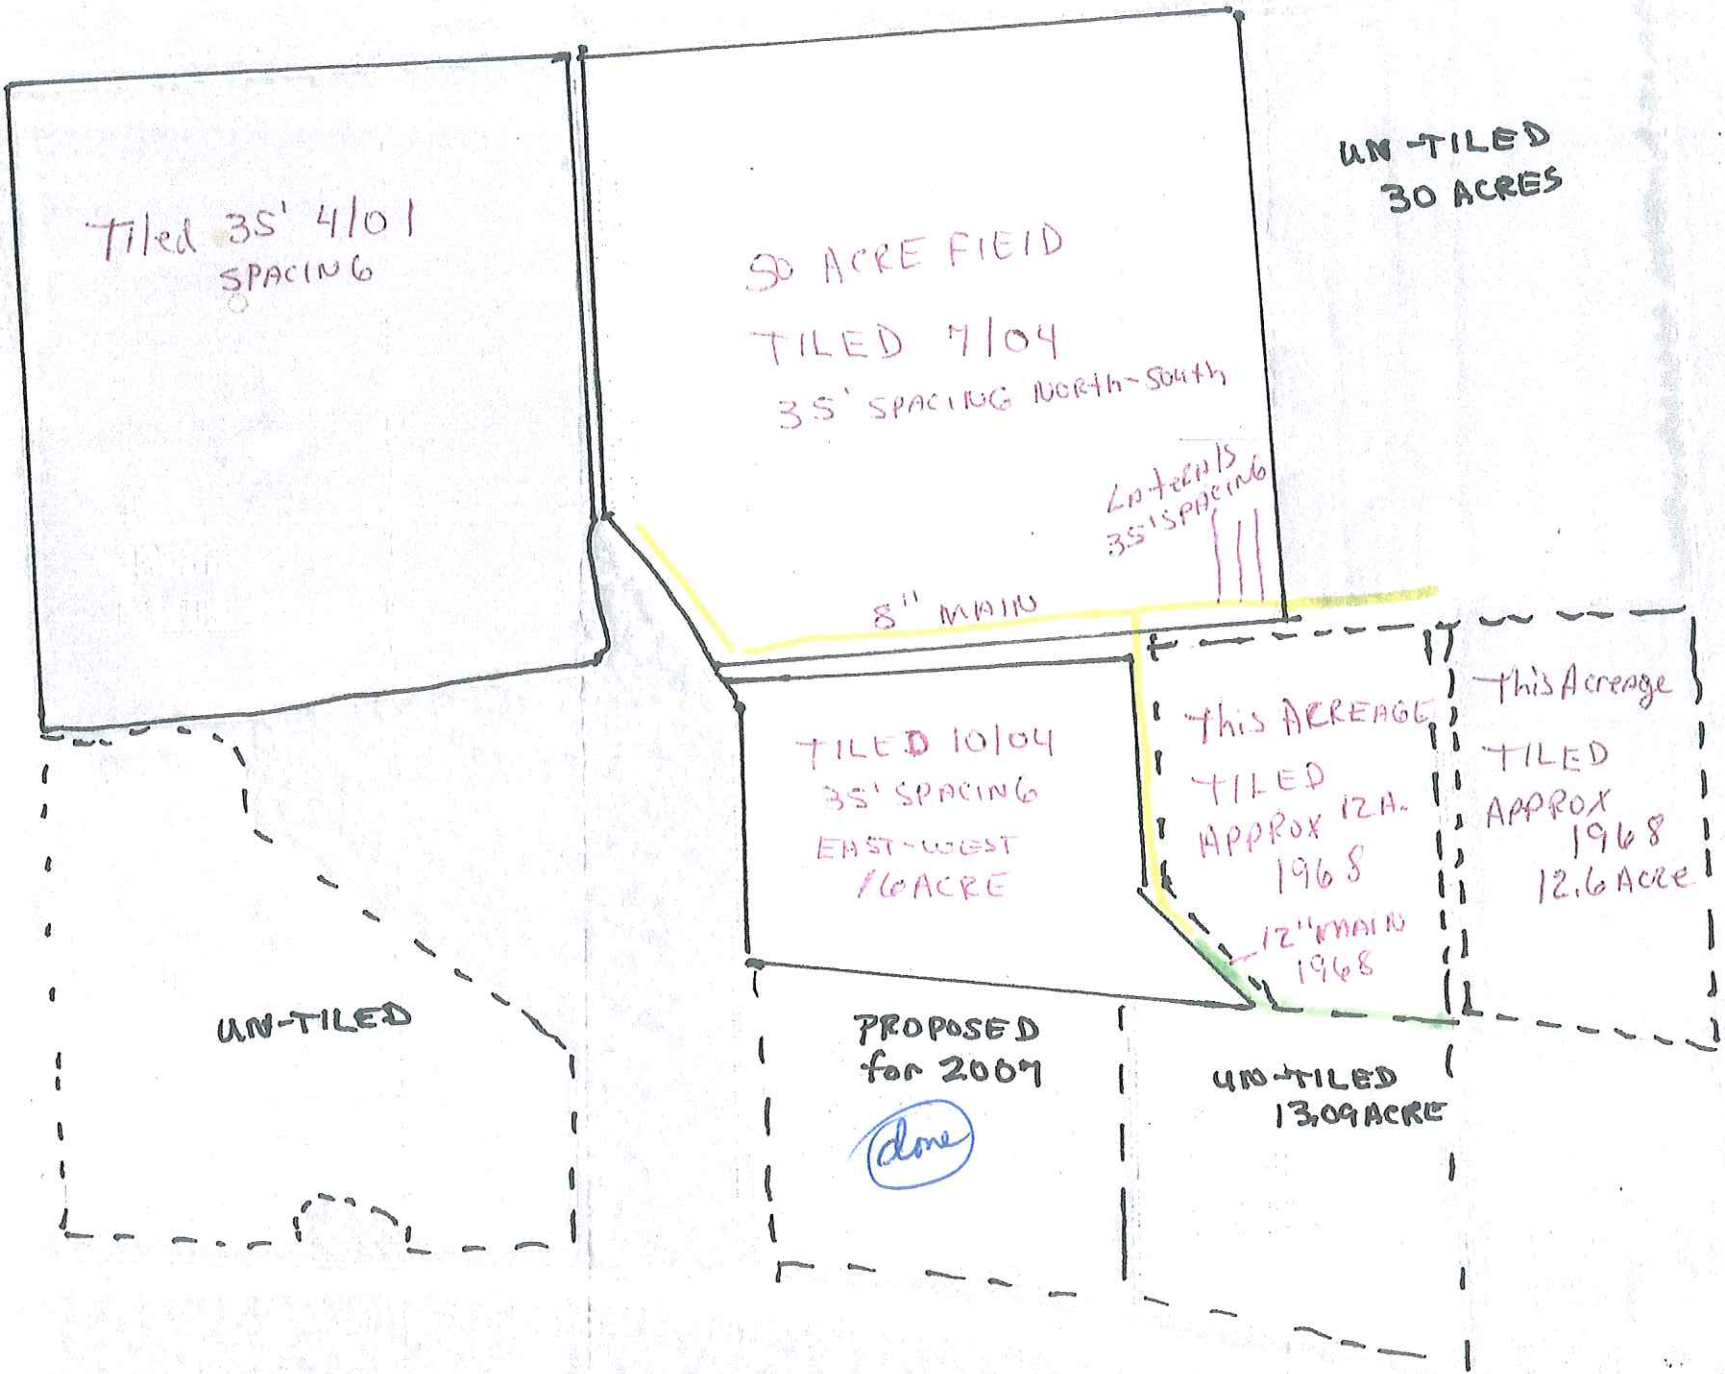 Tiled 35' 4/01
SPACING
50 ACRE FIElD
TILED 7/04
35' SPACING NORth-South
LAterAls
35' SPACING
8" MAIN
UN-TILED
30 ACRES
TILED 10/04
35' SPACING
EAST-WEST
16 ACRE
this ACREAGE
TILED
APPROX 12A.
1968
12" MAIN
1968
this Acreage
TILED
APPROX
1968
12.6 Acre
UN-TILED
PROPOSED
for 2007
done
UN-TILED
13.09 ACRE